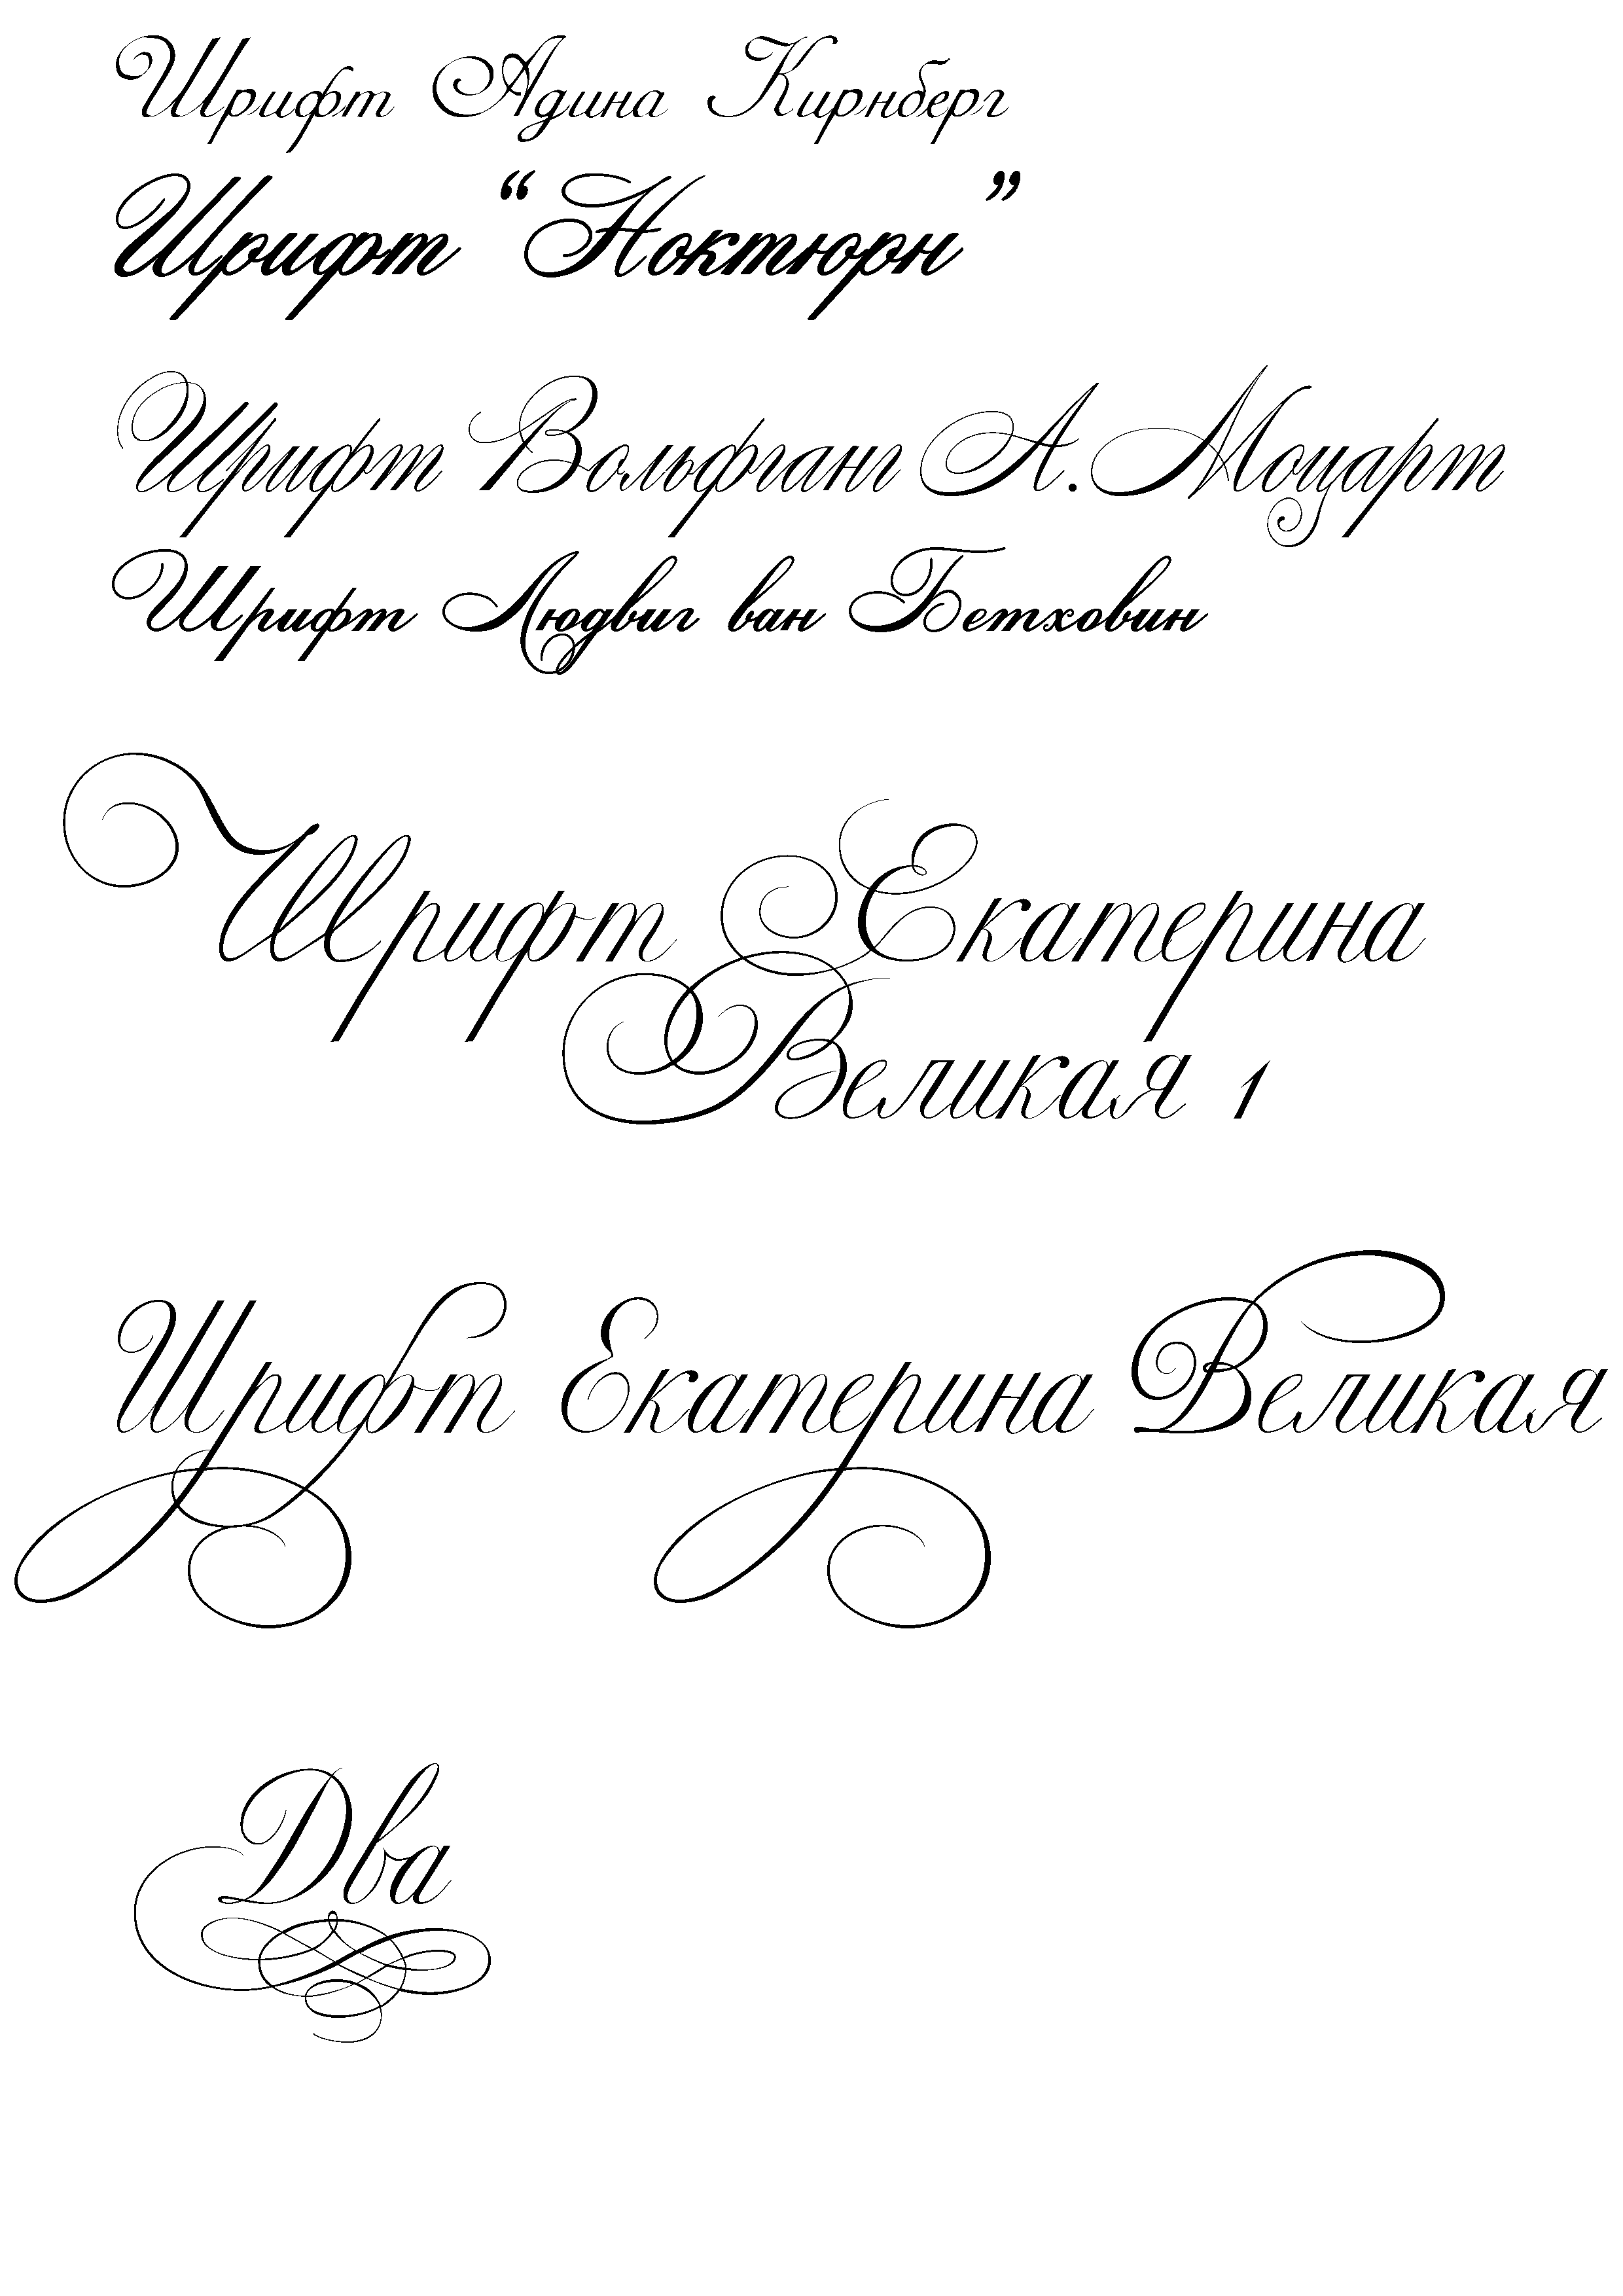 Шрифт Адина Кирнберг
Шрифт “Ноктюрн”
Шрифт Вольфганг А.Моцарт
Шрифт Людвиг ван Бетховин
Шрифт Екатерина
Великая 1
Шрифт Екатерина Великая
Два